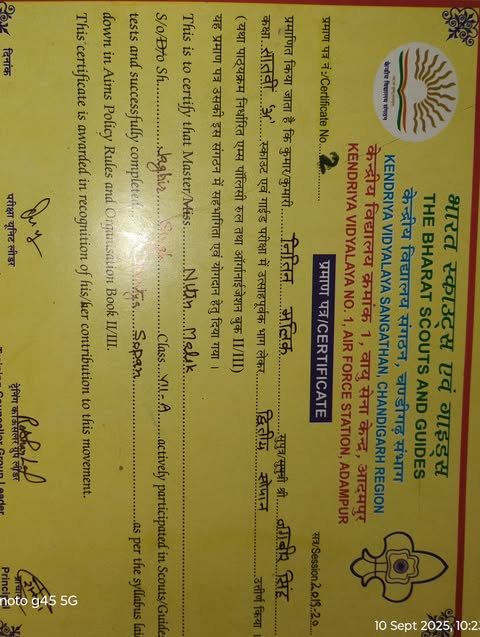 भारत स्काउट्स एवं गाइड्स
THE BHARAT SCOUTS AND GUIDES
केन्द्रीय विद्यालय संगठन, चण्डीगढ़ संभाग
KENDRIYA VIDYALAYA SANGATHAN, CHANDIGARH REGION
केन्द्रीय विद्यालय क्रमांक 1, वायु सेना केन्द्र, आदमपुर
KENDRIYA VIDYALAYA NO. 1, AIR FORCE STATION, ADAMPUR
केन्द्रीय विद्यालय संगठन
प्रमाण पत्र नं./Certificate No. 2
प्रमाण पत्र/CERTIFICATE
सत्र/Session 2019-20
प्रमाणित किया जाता है कि कुमार/कुमारी नितिन मलिक सुपुत्र/सुपुत्री श्री जगबीर सिंह
कक्षा सातवीं 'अ' स्काउट एवं गाईड परीक्षा में उत्साहपूर्वक भाग लेकर द्वितीय सोपान उत्तीर्ण किया।
(यथा पाठ्यक्रम निर्धारित एम्स पॉलिसी रूल तथा ऑर्गेनाईजेशन बुक II/III)
यह प्रमाण पत्र उसकी इस संगठन में सहभागिता एवं योगदान हेतु दिया गया।
This is to certify that Master/Miss Nitin Malik
S/o/D/o Sh. Jagbir Singh Class VII-A actively participated in Scouts/Guide
tests and successfully completed Sopan as per the syllabus lai
down in Aims Policy Rules and Organisation Book II/III.
This certificate is awarded in recognition of his/her contribution to this movement.
दिनांक
परीक्षा यूनिट लीडर
ट्रेनिंग काउंसलर ग्रुप लीडर
Training Counsellor Group Leader
Princi
moto g45 5G
10 Sept 2025, 10:23